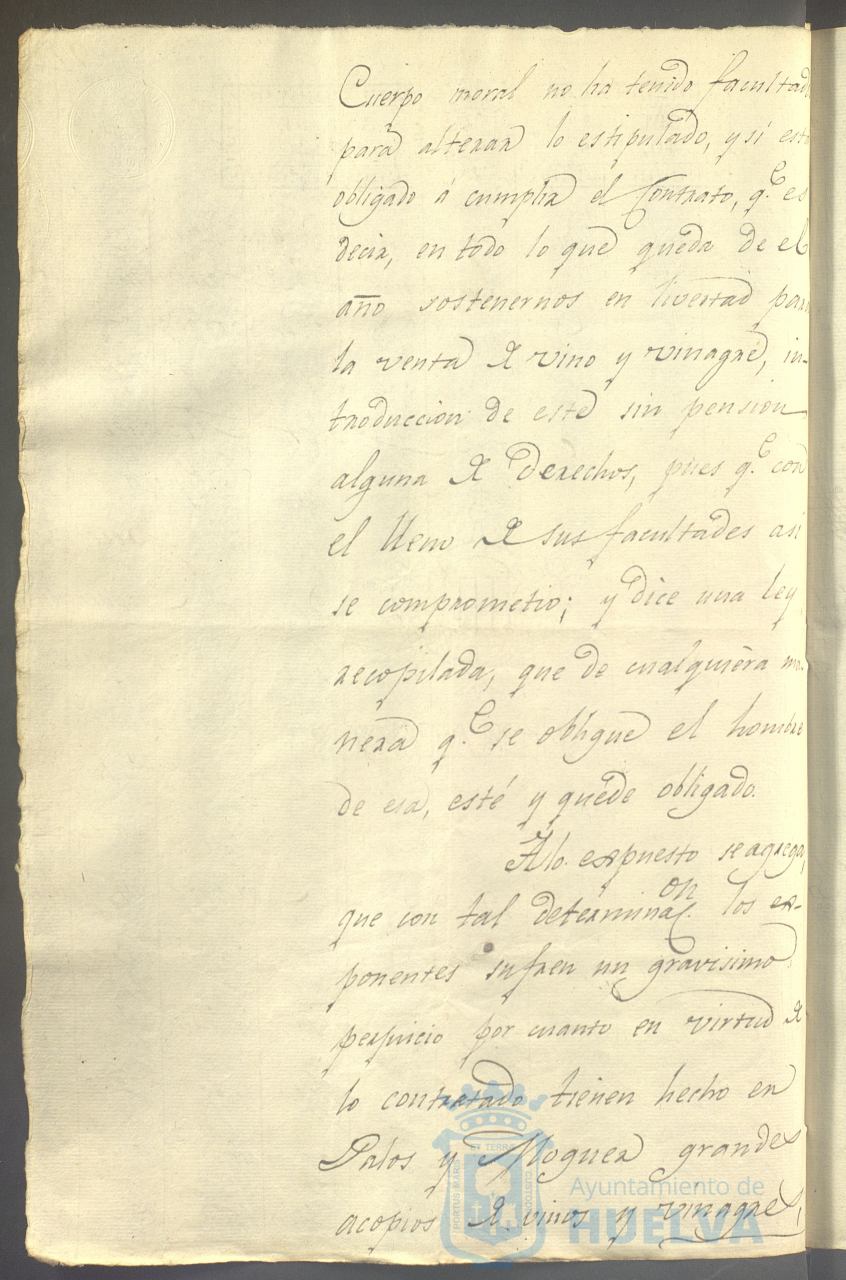 Cuerpo moral no ha tenido facultad
para alterar lo estipulado, y si esta
obligado á cumplir el Contrato, q.e es
decir, en todo lo que queda de el
año sostenernos en livertad para
la venta de vino y vinagre, in-
troduccion de este sin pension
alguna de derechos, pues q.e con
el lleno de sus facultades asi
se comprometio; y dice una ley
recopilada, que de cualquiera ma-
nera q.e se obligue el hombre
de esa, esté y quede obligado.
A lo expuesto se agrega,
que con tal determinac.on los ex-
ponentes sufren un gravisimo
perjuicio por cuanto en virtud de
lo contratado tienen hecho en
Palos y Moguer grandes
acopios de vinos y vinagres,
Ayuntamiento de
HUELVA